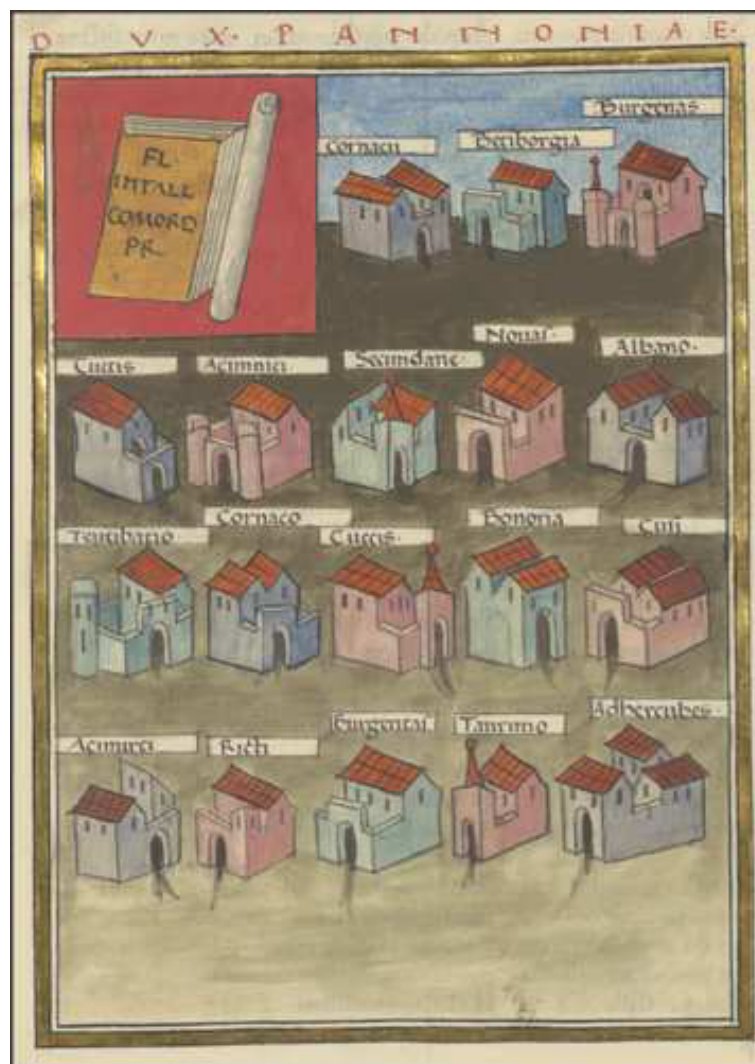 DVX·PANNONIAE·
FL·
INTALL
COMORD
PR·
Cornacu
Betiborgia
Burgenas
Cuccis
Acimnici·
Secundane·
Nouas·
Albano·
Teutibario
Cornaco
Cuccis·
Bononia
Cusi
Acimirci
Ricti
Burgentas
Taurino
Adhercules·